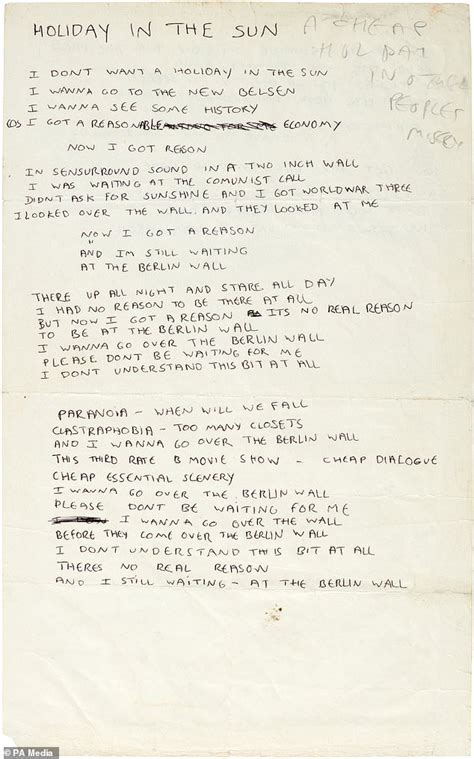 HOLIDAY IN THE SUN
A CHEAP
HOLIDAY
IN OTHER
PEOPLES
MISERY
I DONT WANT A HOLIDAY IN THE SUN
I WANNA GO TO THE NEW BELSEN
I WANNA SEE SOME HISTORY
COS I GOT A REASONABLE ECONOMY
NOW I GOT RESON
IN SENSURROUND SOUND IN A TWO INCH WALL
I WAS WAITING AT THE COMUNIST CALL
DIDNT ASK FOR SUNSHINE AND I GOT WORLDWAR THREE
I LOOKED OVER THE WALL AND THEY LOOKED AT ME
NOW I GOT A REASON
AND IM STILL WAITING
AT THE BERLIN WALL
THERE UP ALL NIGHT AND STARE ALL DAY
I HAD NO REASON TO BE THERE AT ALL
BUT NOW I GOT A REASON ITS NO REAL REASON
TO BE AT THE BERLIN WALL
I WANNA GO OVER THE BERLIN WALL
PLEASE DONT BE WAITING FOR ME
I DONT UNDERSTAND THIS BIT AT ALL
PARANOIA - WHEN WILL WE FALL
CLASTRAPHOBIA - TOO MANY CLOSETS
AND I WANNA GO OVER THE BERLIN WALL
THIS THIRD RATE B MOVIE SHOW - CHEAP DIALOGUE
CHEAP ESSENTIAL SCENERY
I WANNA GO OVER THE BERLIN WALL
PLEASE DONT BE WAITING FOR ME
I WANNA GO OVER THE WALL
BEFORE THEY COME OVER THE BERLIN WALL
I DONT UNDERSTAND THIS BIT AT ALL
THERES NO REAL REASON
AND I STILL WAITING - AT THE BERLIN WALL
© PA Media